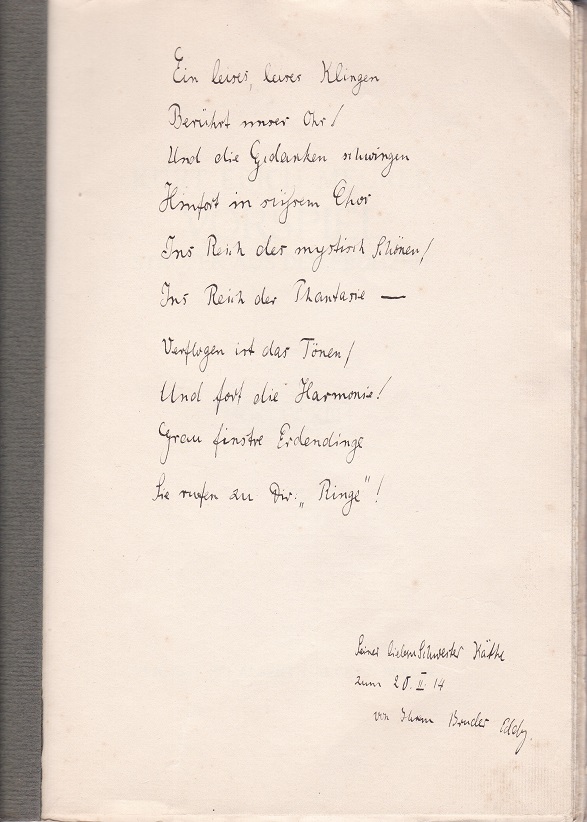 Ein leises, leises Klingen
Berührt unser Ohr/
Und die Gedanken schwingen
Hinfort in süßrem Chor
Ins Reich des mystisch Schönen/
Ins Reich der Phantasie —
Verflogen ist das Tönen/
Und fort die Harmonie!
Grau finstre Erdendinge
Sie rufen zu Dir: „Ringe"!
Seiner lieben Schwester Käthe
zum II. 14
von Ihrem Bruder Eddy.